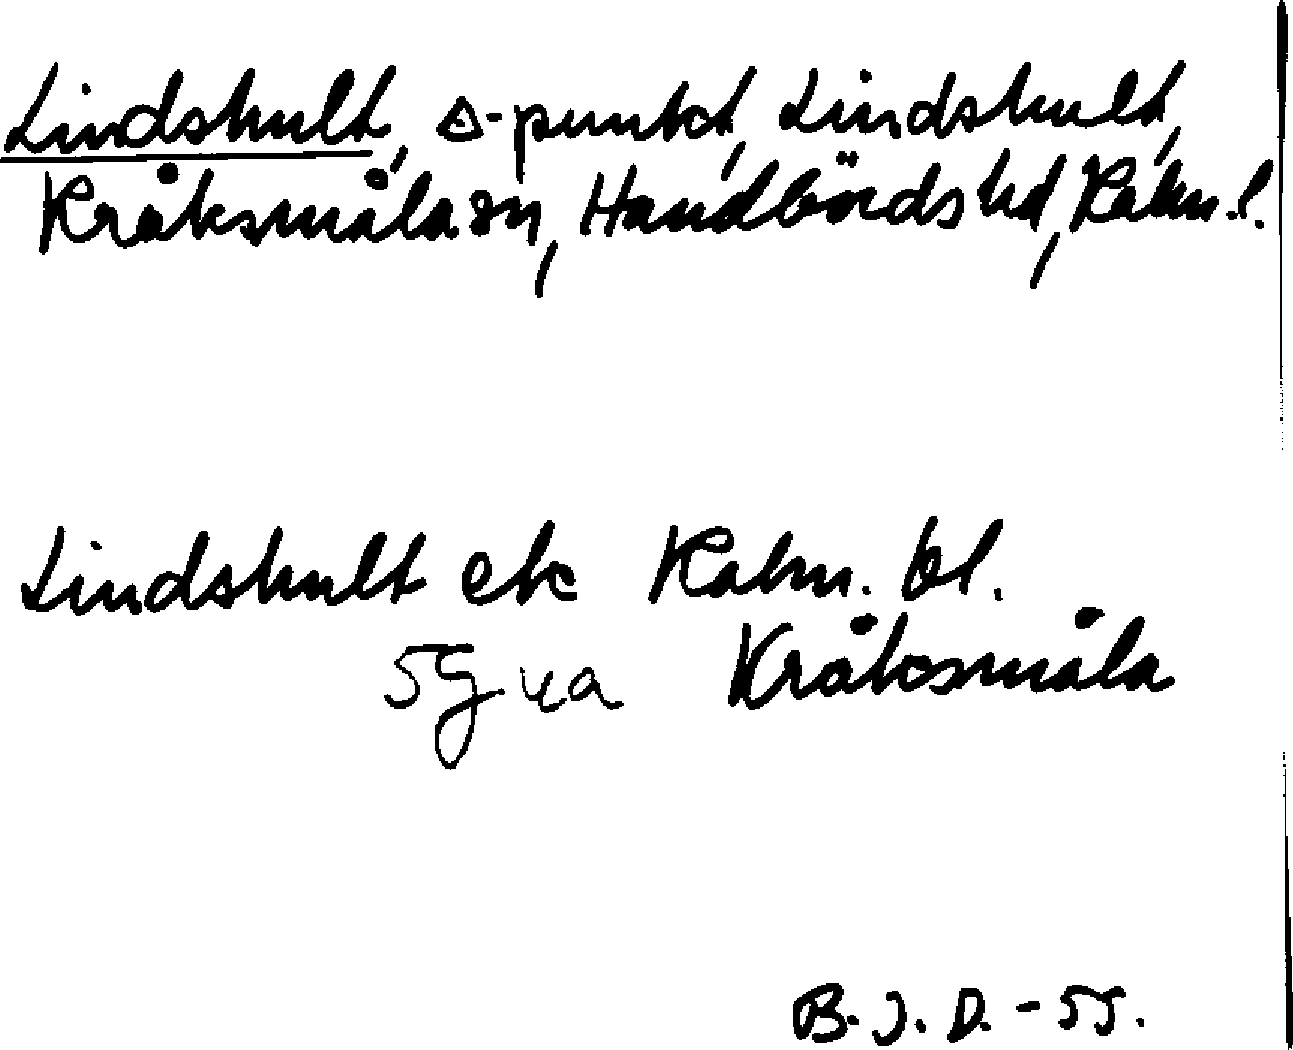 Lindshult, △-punkt, Lindshult,
Kråksmåla sn, Handbörds hd, Kalm. l.
Lindshult ek Kalm. bl.
5G 4a Kråksmåla
B.J.D. -55.